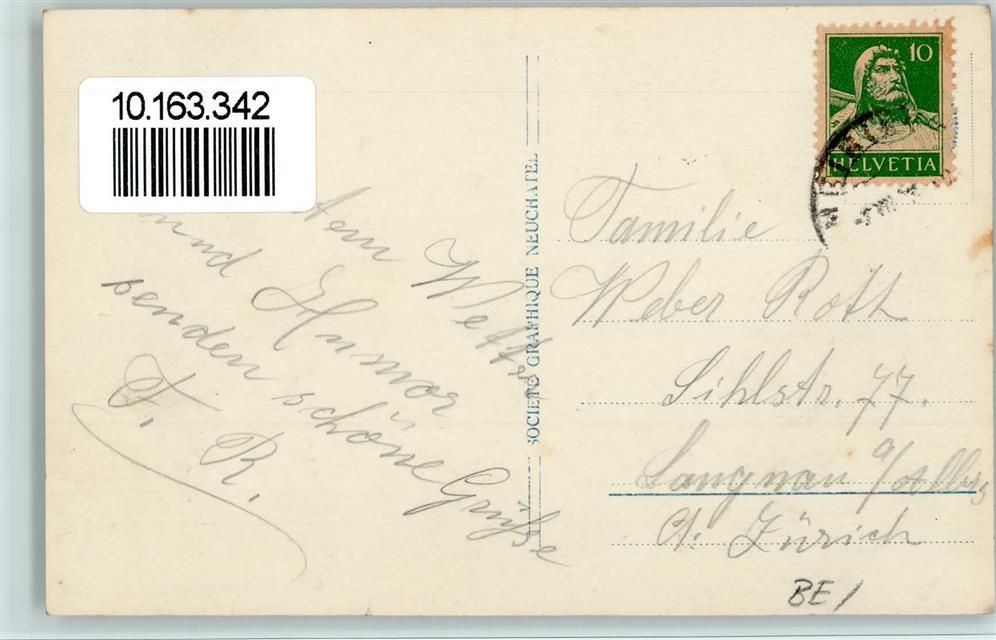 10.163.342
dem Wetter
und Humor
senden schöne Grüsse
F. R.
SOCIETE GRAPHIQUE NEUCHATEL
10
HELVETIA
Familie
Weber Roth
Sihlstr. 77.
Langnau a/Albis
Ct. Zürich
BE /